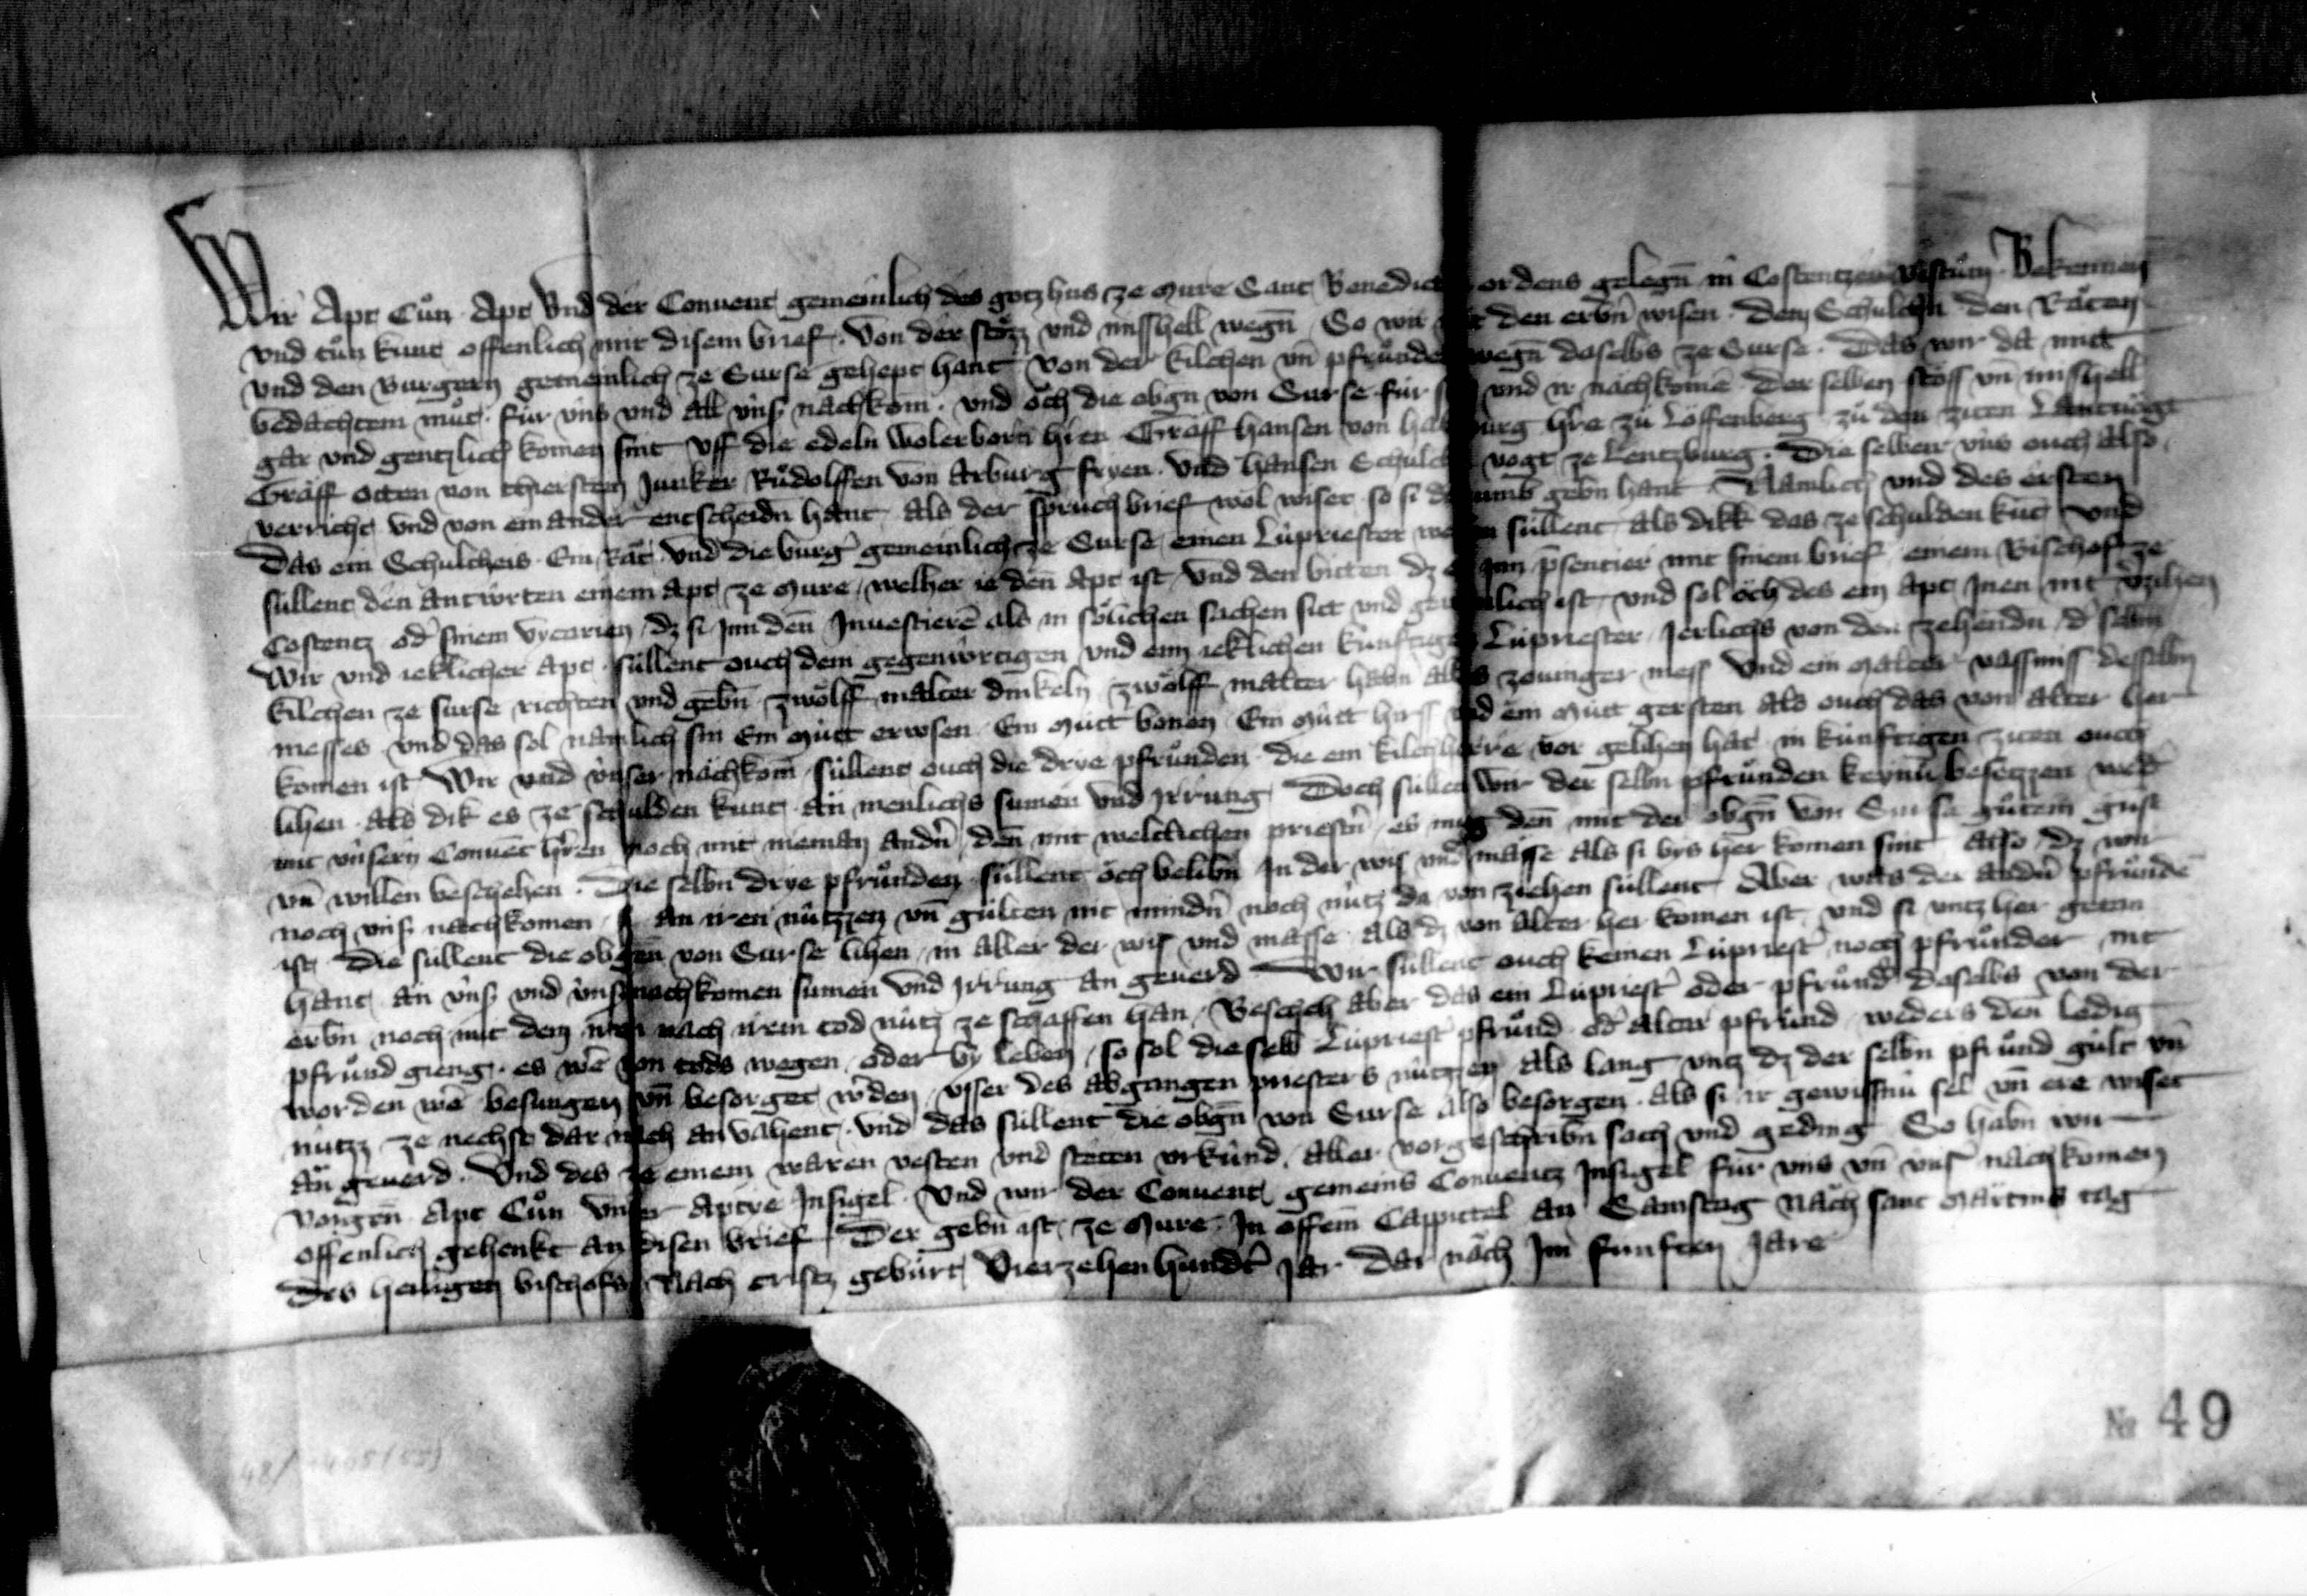 Wir Apt Cůn Apt Vnd der Conuent gemeinlich des gotzhus ze Mure Sant Benedict ordens gelegn̄ in Costentzer Bistům Bekennen
vnd tůn kunt offenlich mit disem brief. Von der stözz vnd misshell wegn̄ So wir mit den erbn̄ wisen. Dem Schulthn̄ den Räten
vnd den Burgern gemeinlich ze Surse gehept hant von der kilchen vn̄ pfrůnde wegn̄ daselbs ze Surse. Das wir da mit
bedachtem můt. für vns vnd all vns nachkom̄. vnd öch die obgn von Surse für si vnd ir nachkomē Der selben stöss vn̄ misshell
gar vnd gentzlich komen sint vff die edeln wolerborn hren Graff Hansen von Habspurg hre zů Löffenberg zů den ziten Lantuogt
Graff Otten von thierstein Junker Růdolffen von Arburg fryen. Vnd Hansen Schulth vogt ze Lentzburg. Die selben vns ouch also
verricht vnd von ein ander entscheidn̄ hant als der spruch brief wol wiset so si darumb gebn hant. Namlich vnd des ersten
Das ein Schultheis. Ein Rät vnd die burg̕ gemeinlich ze Surse einen Lüpriester welen süllent als dikk das ze schulden kunt vnd
süllent den antwrten einem apt ze Mure / welher ie den̄ Apt ist / vnd den bitten dz er inn p̄sentier mit sinem brief einem Bischof ze
Costentz od̕ sinem vycarien / dz si inn den̄ Inuestierē als in sölichen sachen sitt vnd gewonlich ist / vnd sol öch des ein apt Inen nit v̕zihen
Wir vnd ieklicher apt süllent ouch dem gegenwrtigen vnd eim ieklichen künftigen Lüpriester / Jerlichs von den zehendn / d̕ selbn
kilchen ze surse richten vnd gebn̄ zwölff malter dinkeln zwölff malter habn̄ alles zouinger mess Vnd ein malter vassmiss desselbn
messes vnd das sol namlich sin Ein mütt erwsen Ein Mütt bonen Ein mütt hirss vnd ein mütt gersten als ouch das von alter her
komen ist Wir vnd vnser nachkom̄ süllent ouch die drye pfrůnden die ein kilchherre vor gelihen hat in künftigen ziten ouch
lihen als dik es ze schulden kunt än menlichs sumen vnd irrung Doch süllen wir der selbn pfrůnden keynn̄ besetzzen wed̕
mit vnsern Conuēt hr̄en noch mit nieman and̕n den̄ mit weltlichen priest̕n / es mug den̄ mit der obgn̄ von Surse gůtem gust
vn̄ willen beschehen. Die selbn drye pfrůnden süllent öch belibn In der wis vnd masse als si bys her komen sint also / dz wir
noch vns nachkomen / an iren nützzen vn̄ gülten nit mindn̄ noch nütz da von ziehen süllent Aber was der andn̄ pfrůndē
ist / Die süllent die obgen̄ von Surse lihen / in aller der wis vnd masse / als dz von alter her komen ist / vnd si vntz her getan
hant / än vns vnd vns nachkomen sumen vnd irrung än geuerd Wir süllent ouch keinen Lüpriest̕ noch pfrůnder nit
erbn noch mit dem iren nach irem tod nütz ze schaffen han / Beschech aber das ein Lüpriest̕ oder pfrůnd̕ daselbs von der
pfrůnd gieng. es wē von tods wegen oder by leben / so sol die selb Lüpriest̕ pfrůnd od̕ alter pfrůnd weders den̄ ledig
worden wē besungen vn̄ besorget w̕den / vsser des abgangen priesters nützzen als lang vntz dz der selbn pfrůnd gült vn̄
nützz ze nechst dar nach an vahent. vnd das süllent die obgn̄ von Surse also besorgen. als si ir gewissnü sel vn̄ ere wiset
än geuerd. Vnd des ze einem waren vesten vnd stäten vrkünd. aller vorgeschribn̄ sach vnd geding So habn wir
vorgen̄ Apt Cůn vnser aptye Insigel. Vnd wir der Conuent gemeins Conuentz Insigel für vns vn̄ vns nachkomen
offenlich gehenkt an disen brief Der gebn ist ze Mure In offem̄ Cappittel an Samstag näch sant Martins tag
des heiligen bischofs Nach cristz gebürt Vierzehenhundt̕ jar Dar näch Im fünften Jare
№ 49